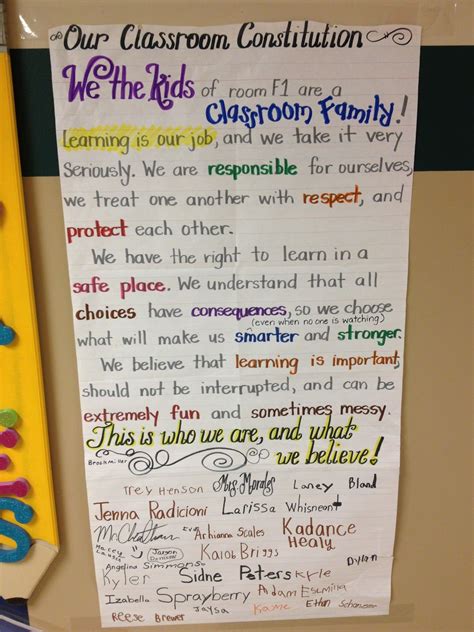 Our Classroom Constitution
We the Kids of room F1 are a
Classroom Family!
Learning is our job, and we take it very
Seriously. We are responsible for ourselves,
we treat one another with respect, and
protect each other.
We have the right to learn in a
safe place. We understand that all
choices have consequences, so we choose
(even when no one is watching)
what will make us smarter and stronger.
We believe that learning is important,
should not be interrupted, and can be
extremely fun and sometimes messy.
This is who we are, and what
we believe!
Brook
Trey Henson Mrs Morales Laney Bland
Jenna Radicioni Larissa Whisnent
Arhianna Scales Kadance
Healy
Macey Jaxson
Kalob Briggs
Angelina Simmons Dylan
Kyler Sidne Peters Kyle
Izabella Sprayberry Aidam Esmina
Jaysa Kame Ethan
Reese Brewer